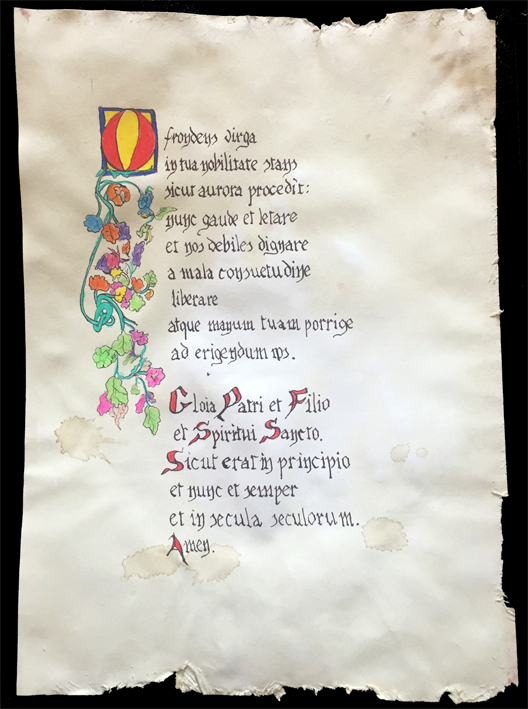 O frondens virga
in tua nobilitate stans
sicut aurora procedit:
nunc gaude et letare
et nos debiles dignare
a mala consuetudine
liberare
atque manum tuam porrige
ad erigendum nos.
Gloia Patri et Filio
et Spiritui Sancto.
Sicut erat in principio
et nunc et semper
et in secula seculorum.
Amen.